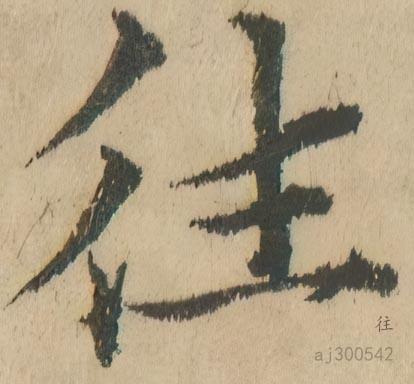 往
往
aj300542